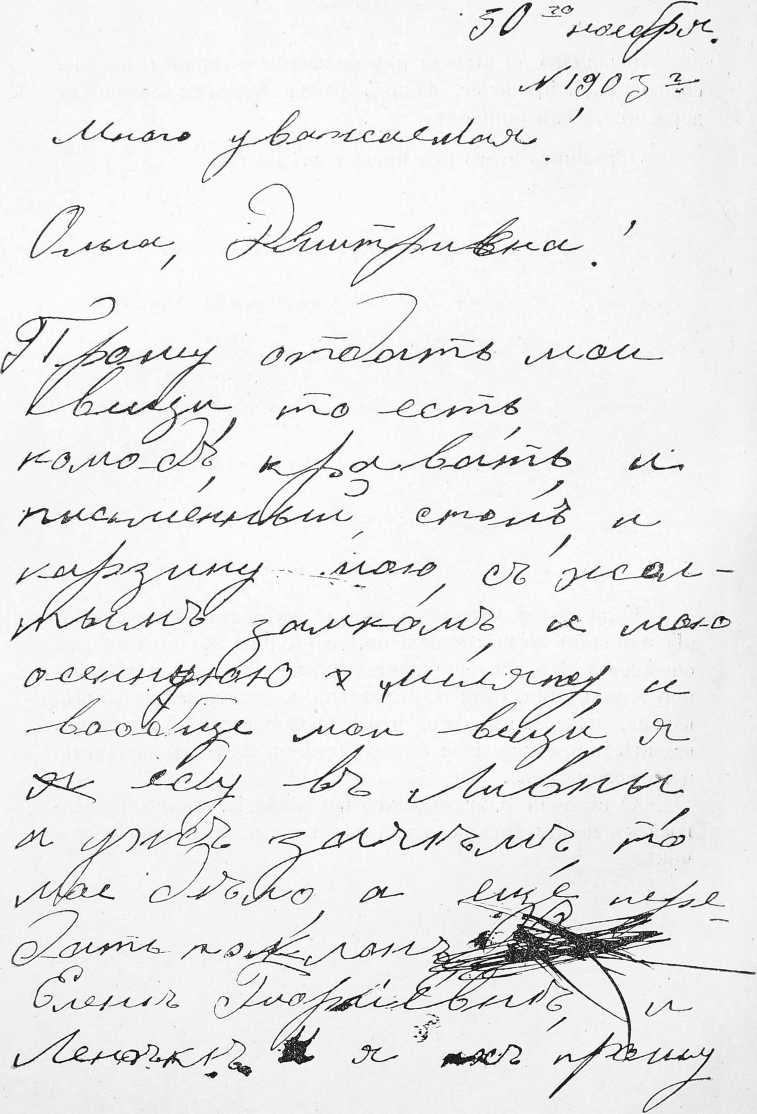 30го ноября.
1903 г
Много уважаемая
Ольга, Дмитривна!
Прошу отдать мои
вещи, то есть
комодъ, кравать и
письменный, столъ, и
карзину мою, съ жол-
тымъ замкомъ и мою
осеннуюю шляпу и
вообще мои вещи я
еду въ Ливны
а ужъ зачѣмъ то
мое дѣло, а ещё пере-
дать поклонъ
Еленѣ Георгіевнѣ, и
Леночкѣ я ихъ прошу